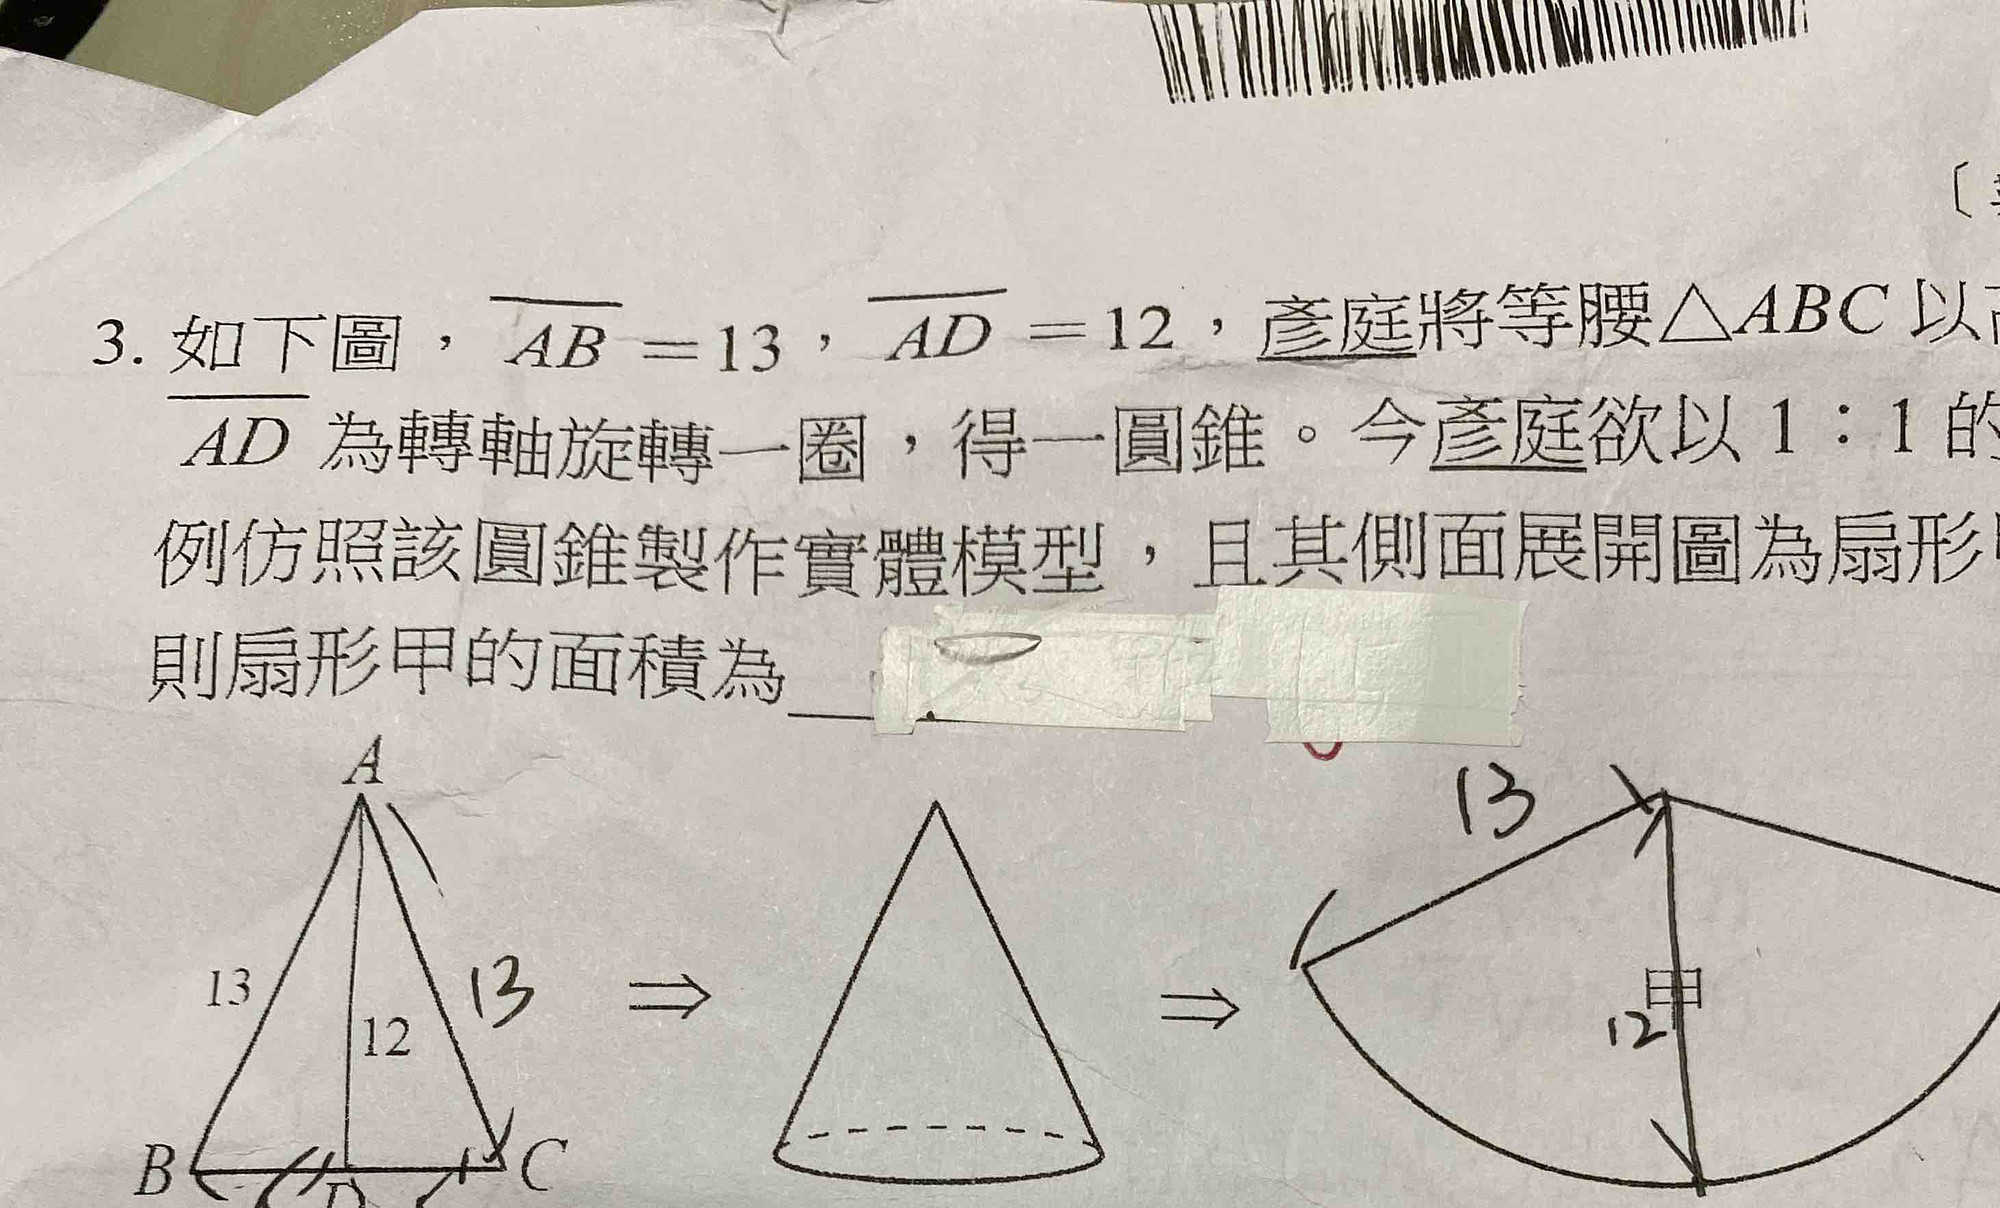 〔
3. 如下圖，AB＝13，AD＝12，彥庭將等腰△ABC 以
AD 為轉軸旋轉一圈，得一圓錐。今彥庭欲以 1：1 的
例仿照該圓錐製作實體模型，且其側面展開圖為扇形
則扇形甲的面積為
A
13
13
12
13
甲
12
B
D
C